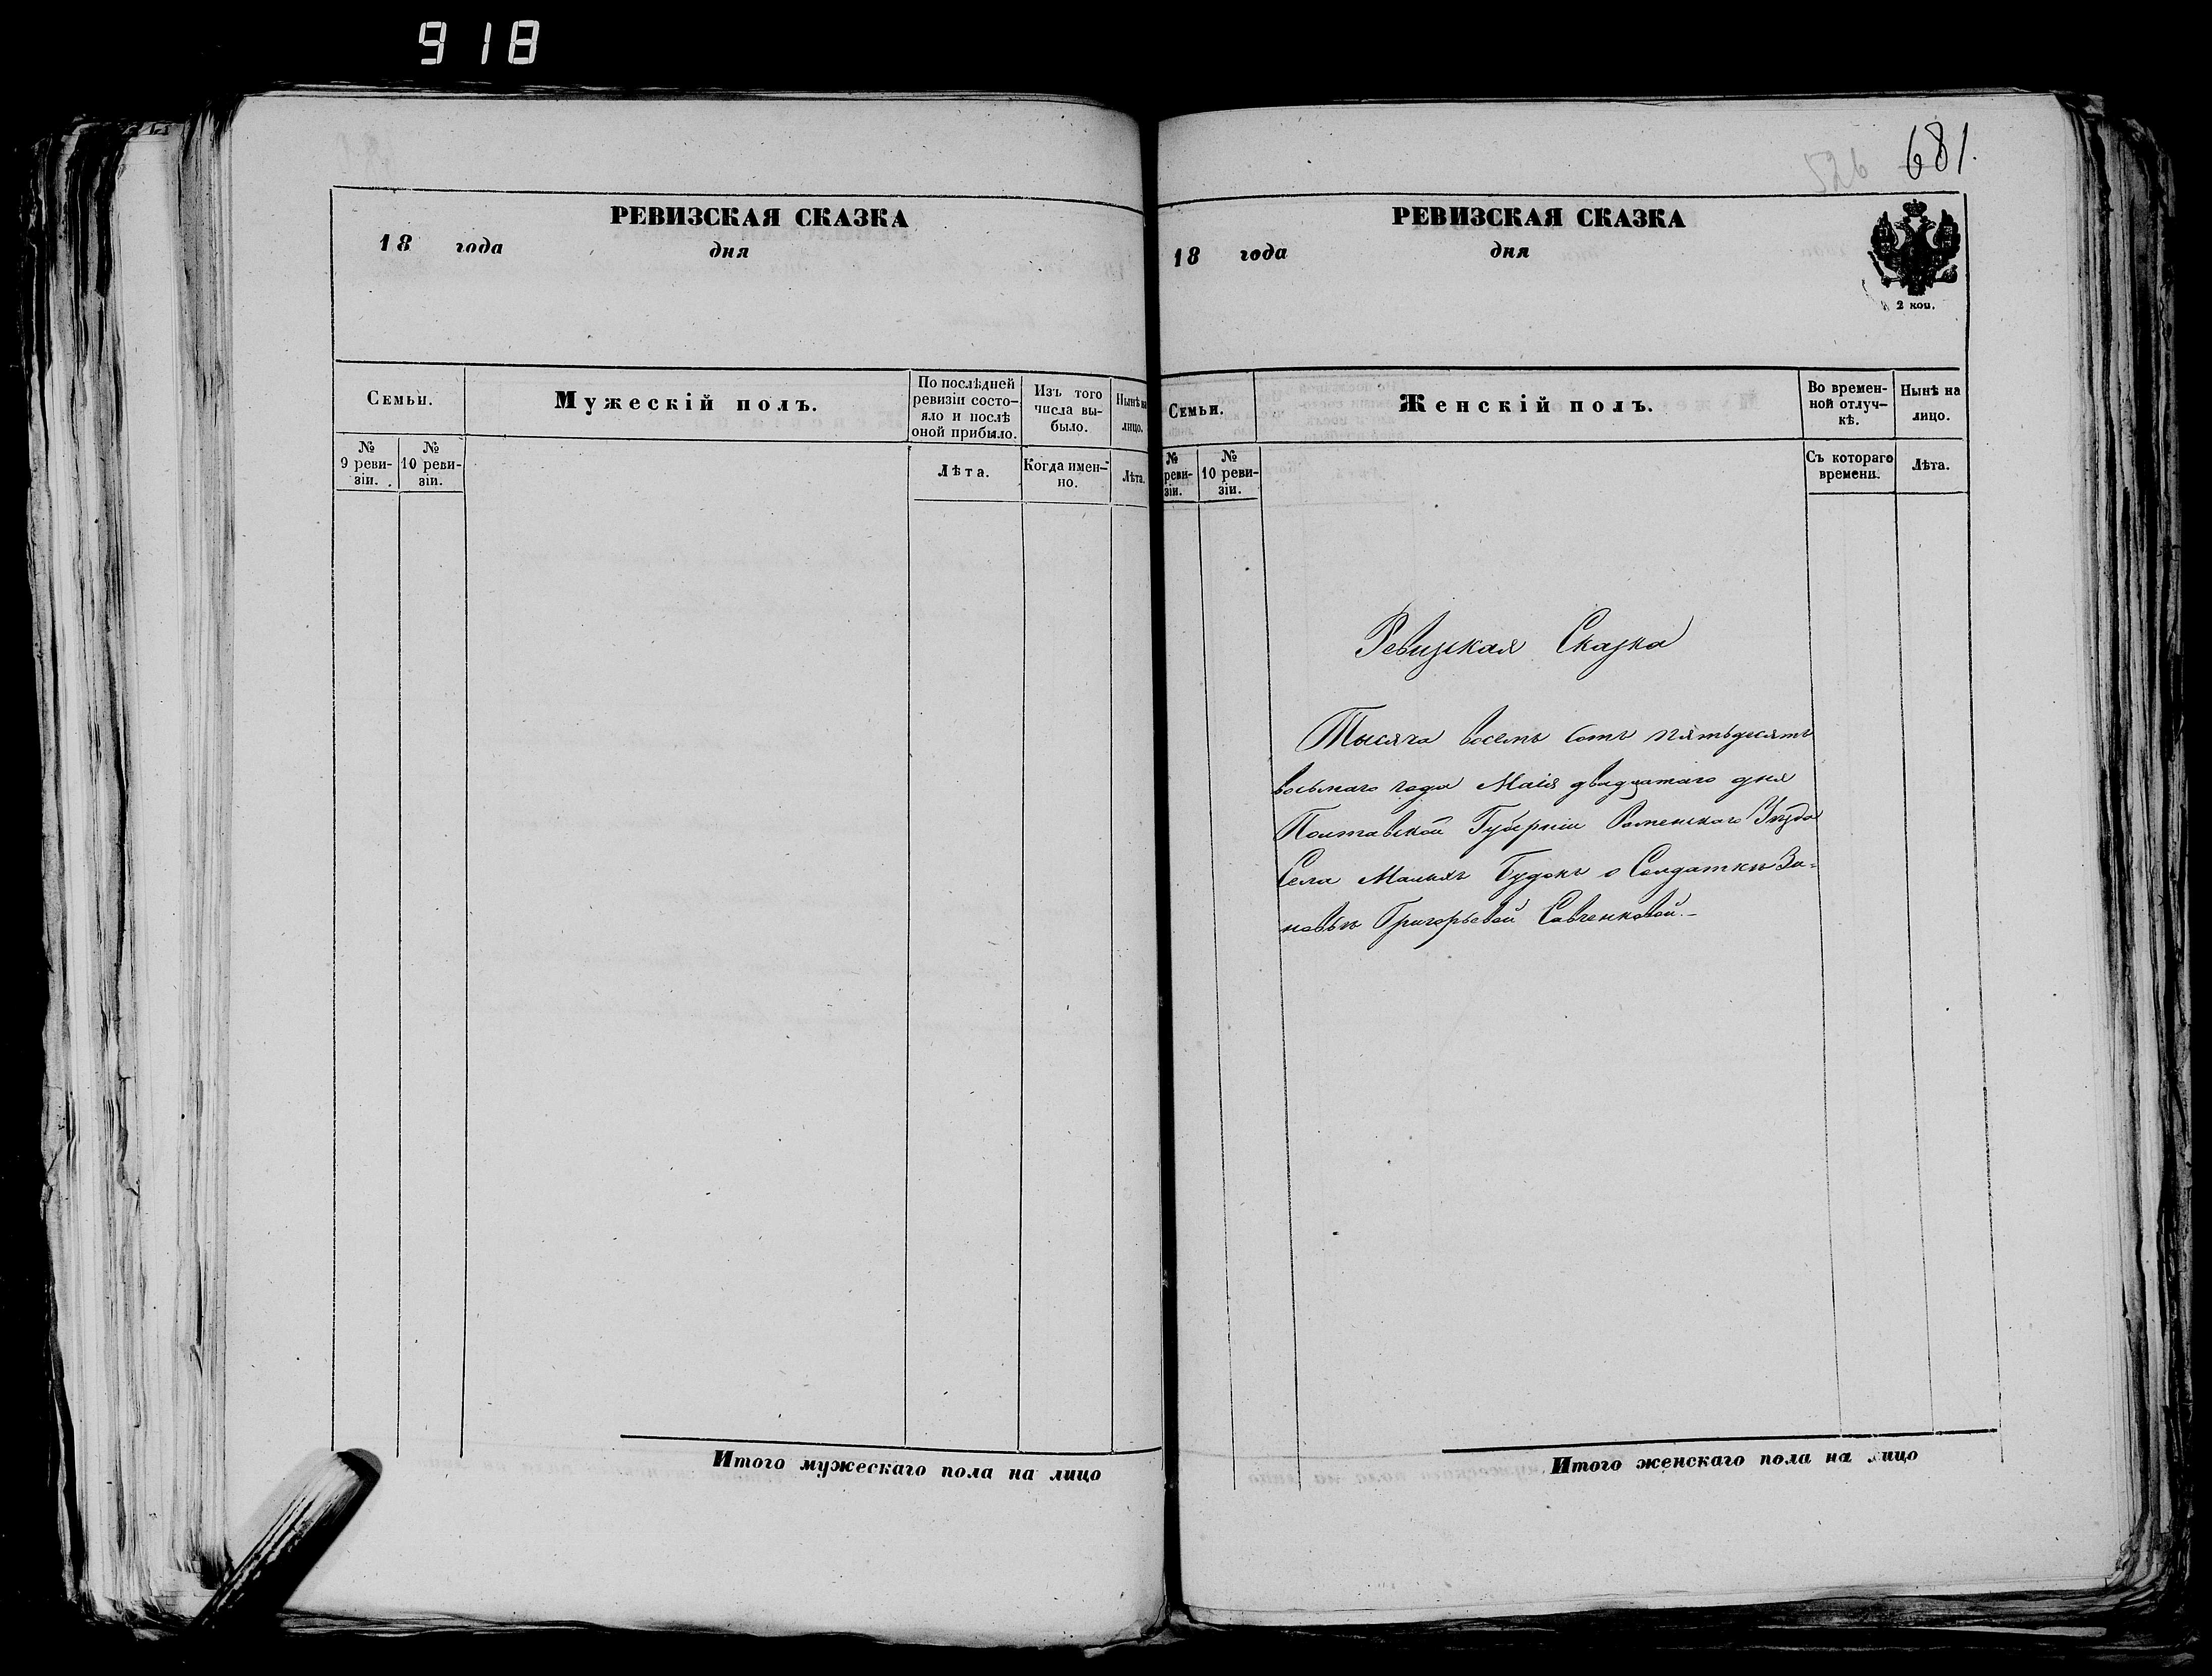 918
РЕВИЗСКАЯ СКАЗКА
18 года дня
Семьи.
Мужескій полъ.
По послѣдней ревизіи состо-яло и послѣ оной прибыло.
Изъ того числа вы-было.
Нынѣ на лицо.
№ 9 реви-зіи.
№ 10 реви-зіи.
Лѣта.
Когда имен-но.
Лѣта.
Итого мужескаго пола на лицо
526 681.
РЕВИЗСКАЯ СКАЗКА
18 года дня
2 коп.
Семьи.
Женскій полъ.
Во времен-ной отлуч-кѣ.
Нынѣ на лицо.
№ реви-зіи.
№ 10 реви-зіи.
Съ котораго времени.
Лѣта.
Ревизкая Сказка
Тысяча восемь сотъ пятьдесятъ
восьмаго года Маія двадцатаго дня
Полтавской Губерніи Роменскаго Уѣзда
Села Малыхъ Будокъ о Солдаткѣ Зи-
новьѣ Григорьевой Савченковой.-
Итого женскаго пола на лицо